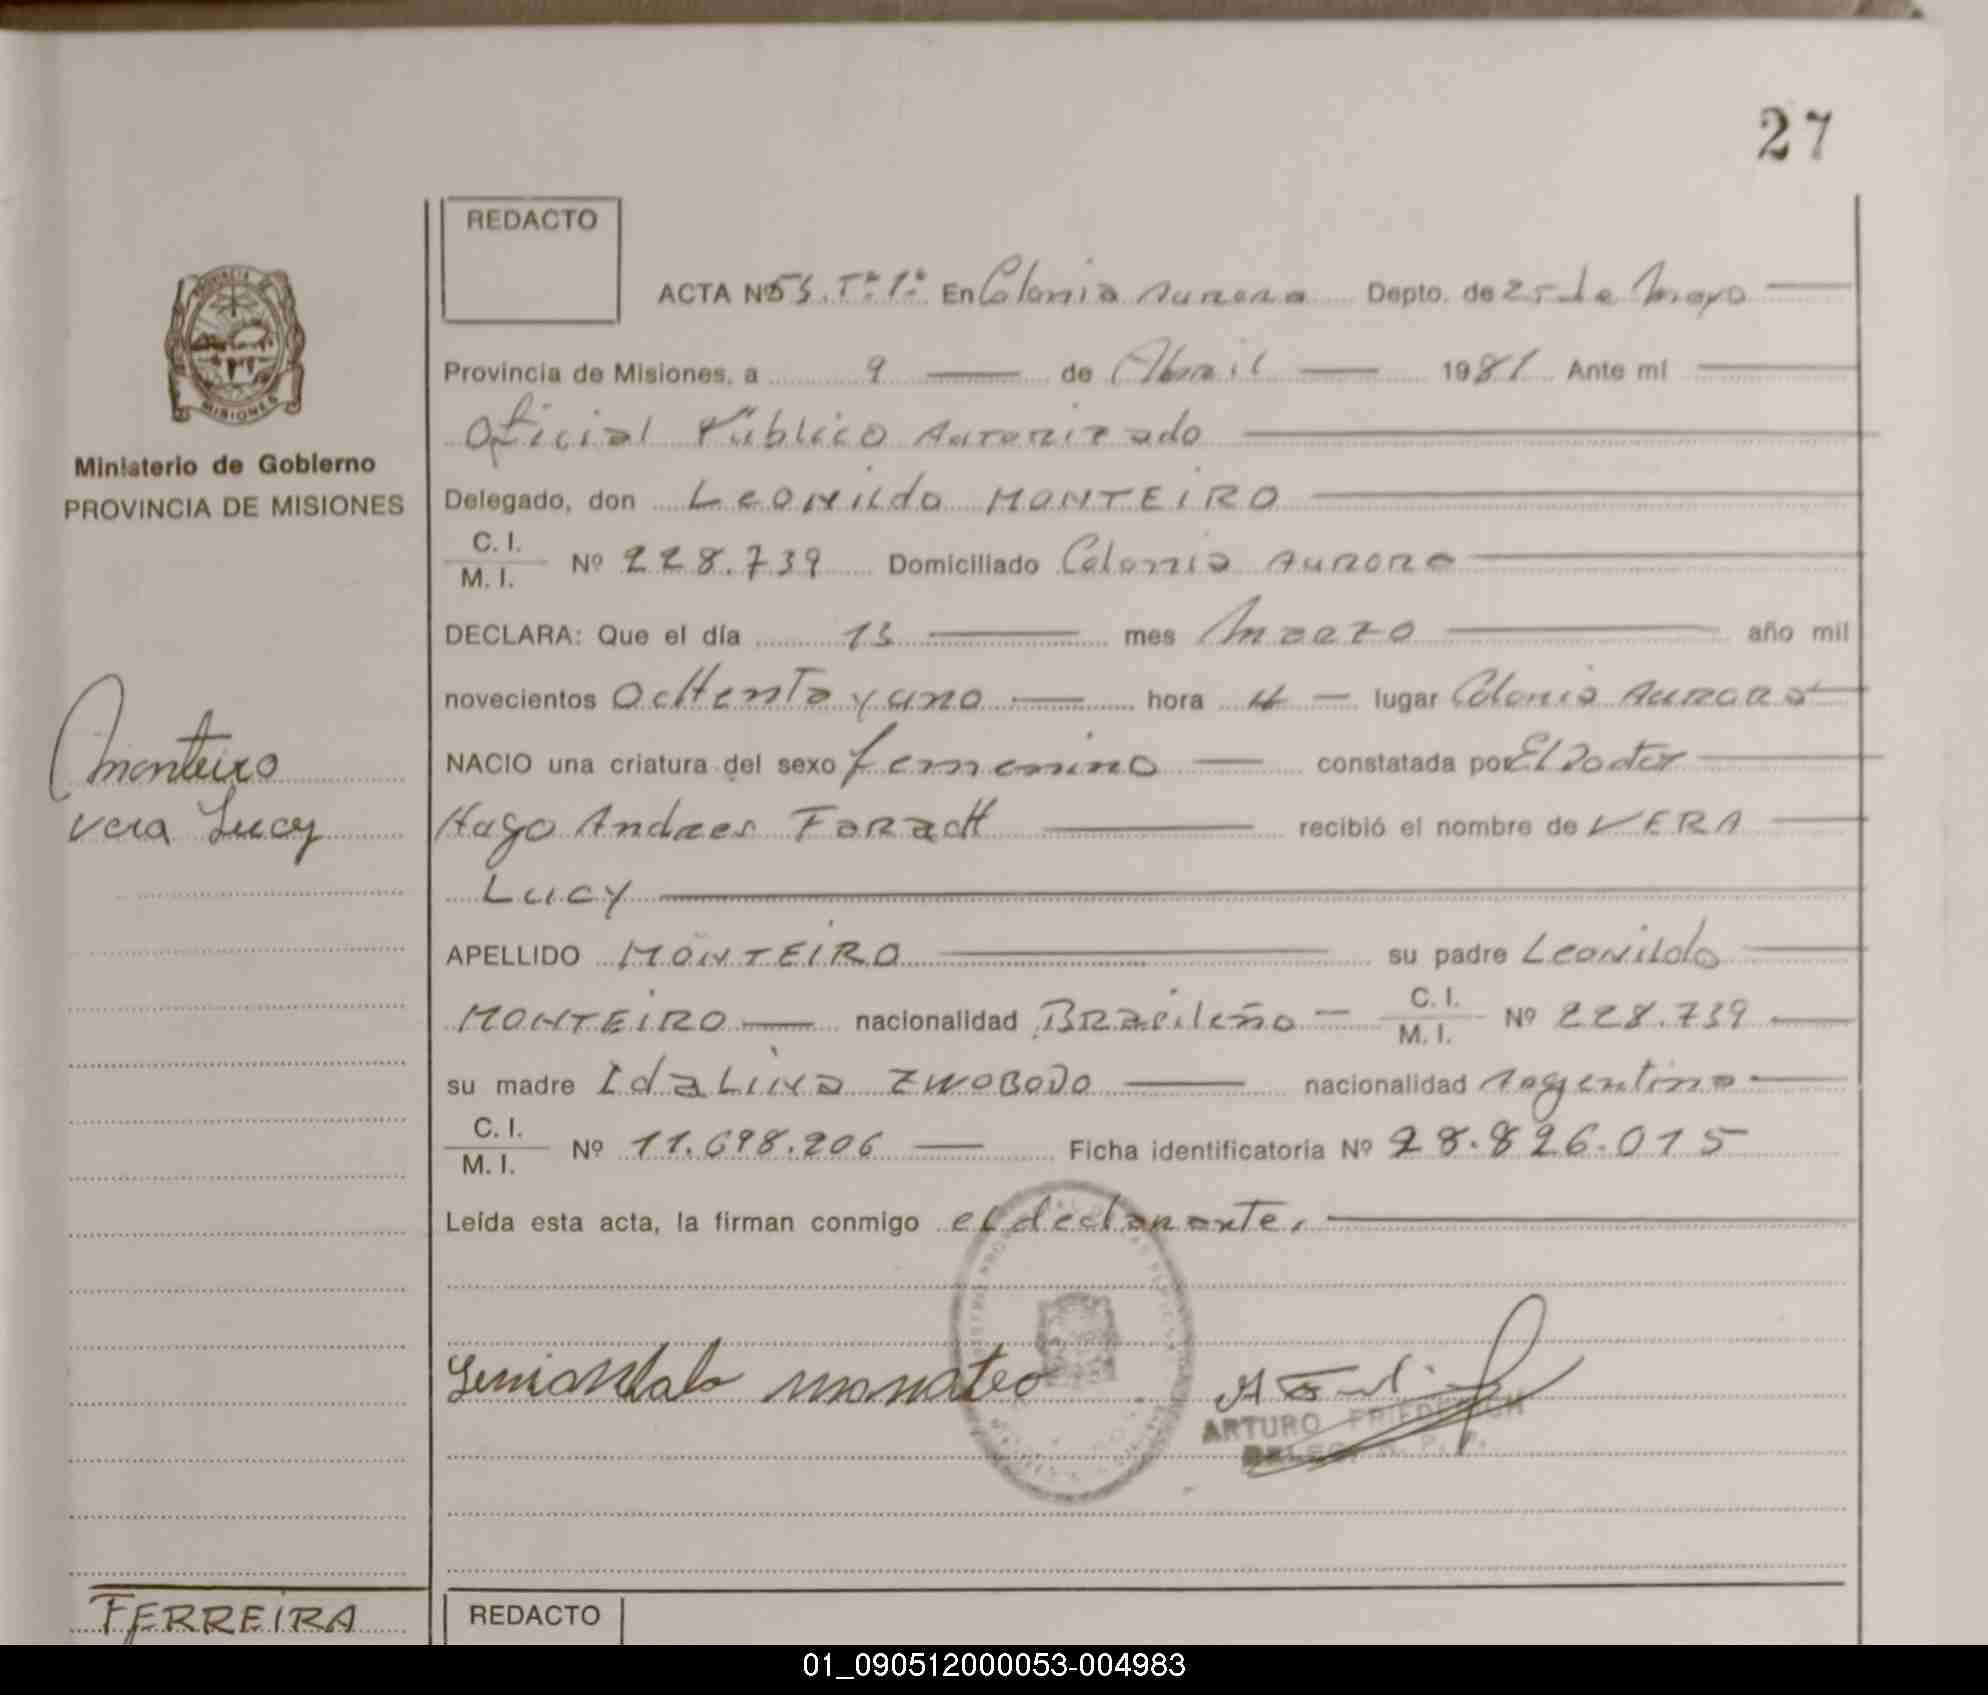 27
REDACTO
ACTA Nº 53. Tº 1º En Colonia Aurora Depto. de 25 de Mayo
Provincia de Misiones, a 9 de Abril 1981 Ante mí
Oficial Público Autorizado
Ministerio de Gobierno
PROVINCIA DE MISIONES
Delegado, don Leonildo MONTEIRO
C. I.
M. I. Nº 228.739 Domiciliado Colonia Aurora
DECLARA: Que el día 13 mes Marzo año mil
novecientos Ochenta y uno hora 4 lugar Colonia Aurora
Monteiro
Vera Lucy
NACIO una criatura del sexo femenino constatada por El Doctor
Hugo Andres Farach recibió el nombre de VERA
Lucy
APELLIDO MONTEIRO su padre Leonildo
MONTEIRO nacionalidad Brasileño C. I.
M. I. Nº 228.739
su madre Idalina ZWOBODO nacionalidad Argentina
C. I.
M. I. Nº 11.698.206 Ficha identificatoria Nº 28.826.015
Leída esta acta, la firman conmigo el declarante.
ARTURO FRIEDERICH
MISIONES
FERREIRA
REDACTO
01_090512000053-004983